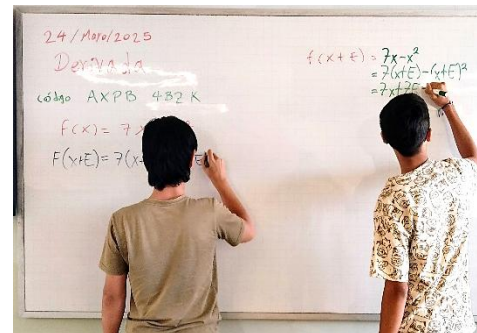 24/Mayo/2025
Derivada
código AXPB 432K
f(x) = 7
F(x+E) = 7(x E)
f(x+E) = 7x-x²
= 7(x+E)-(x+E)²
= 7x+7E